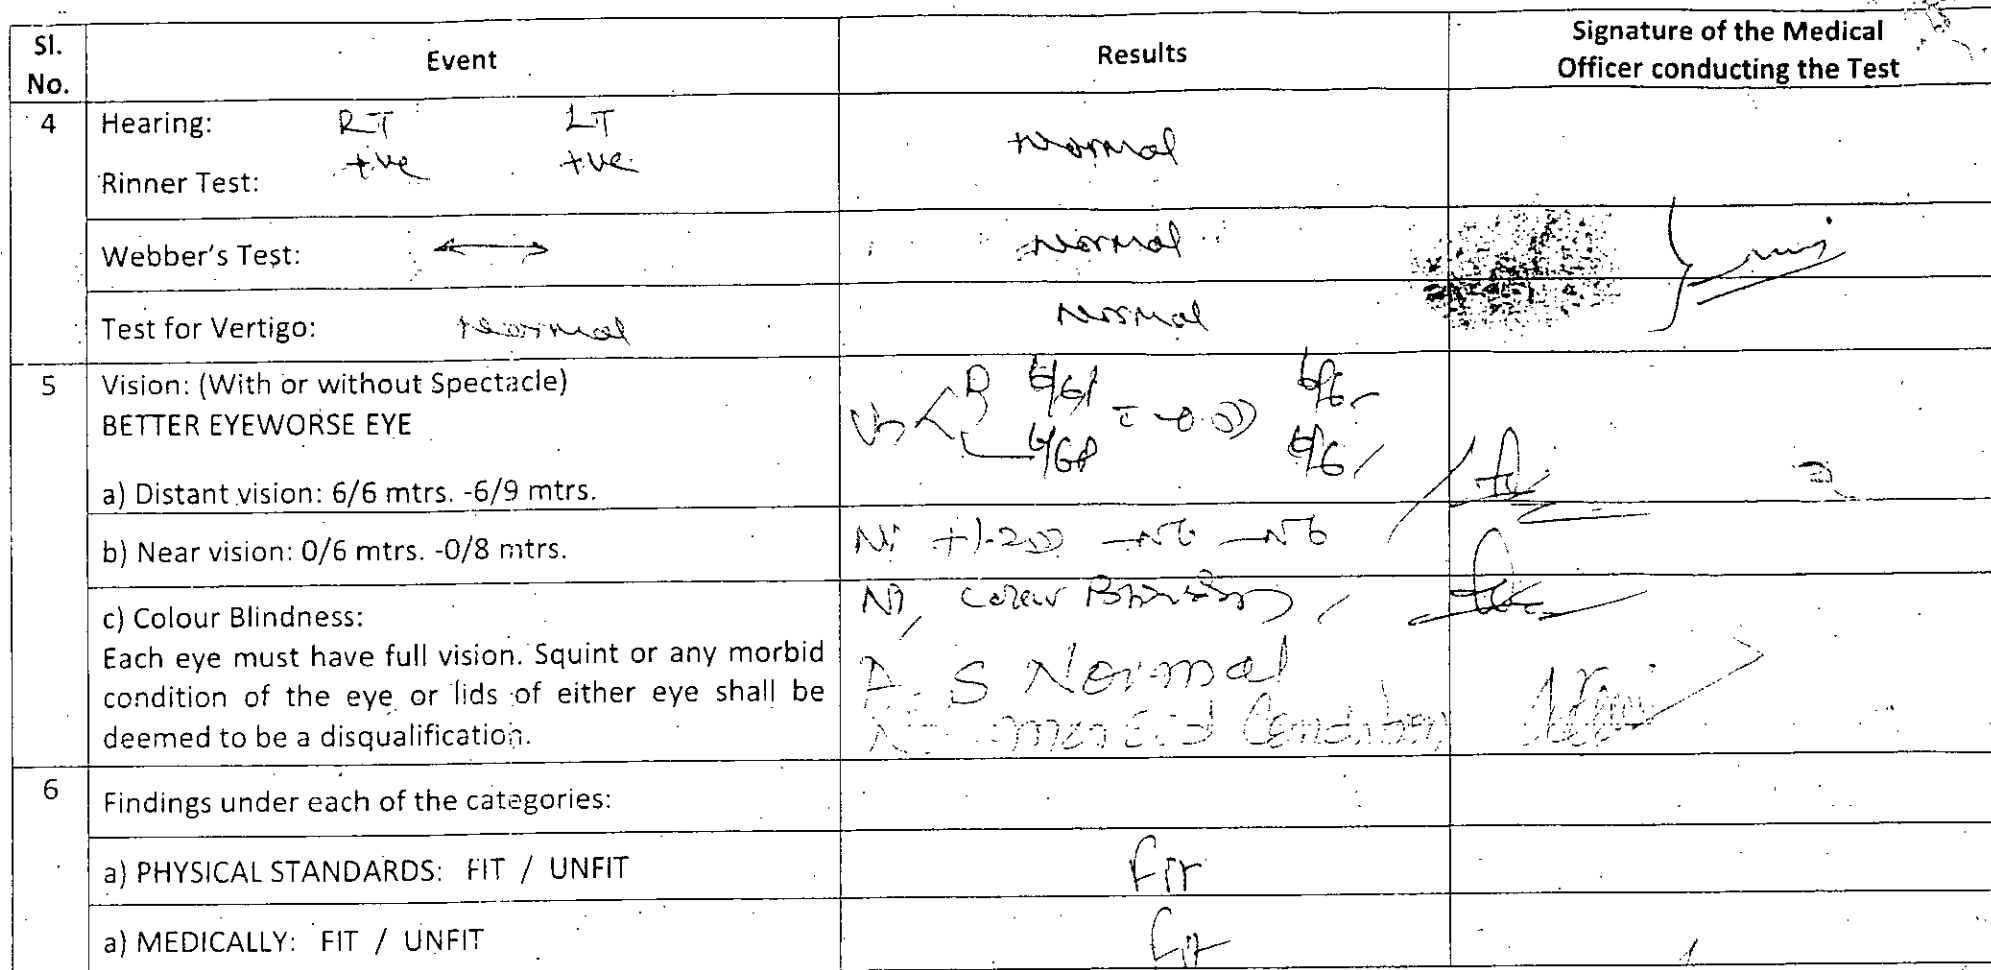 Sl. No. Event Results Signature of the Medical Officer conducting the Test
4 Hearing: RT LT
+ve +ve Normal
Rinner Test:
Webber's Test: ⟷ Normal
Test for Vertigo: Normal Normal
5 Vision: (With or without Spectacle)
BETTER EYEWORSE EYE
a) Distant vision: 6/6 mtrs. -6/9 mtrs.
b) Near vision: 0/6 mtrs. -0/8 mtrs.
c) Colour Blindness:
Each eye must have full vision. Squint or any morbid
condition of the eye or lids of either eye shall be
deemed to be a disqualification.
A. S Normal
Condition
6 Findings under each of the categories:
a) PHYSICAL STANDARDS: FIT / UNFIT Fit
a) MEDICALLY: FIT / UNFIT Fit